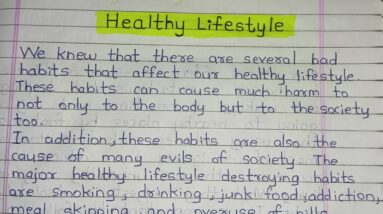 Healthy Lifestyle
We knew that there are several bad
habits that affect our healthy lifestyle.
These habits can cause much harm to
not only to the body but to the society
too.
In addition, these habits are also the
cause of many evils of society. The
major healthy lifestyle destroying habits
are smoking, drinking, junk food, addiction,
meal skipping and overuse of pills